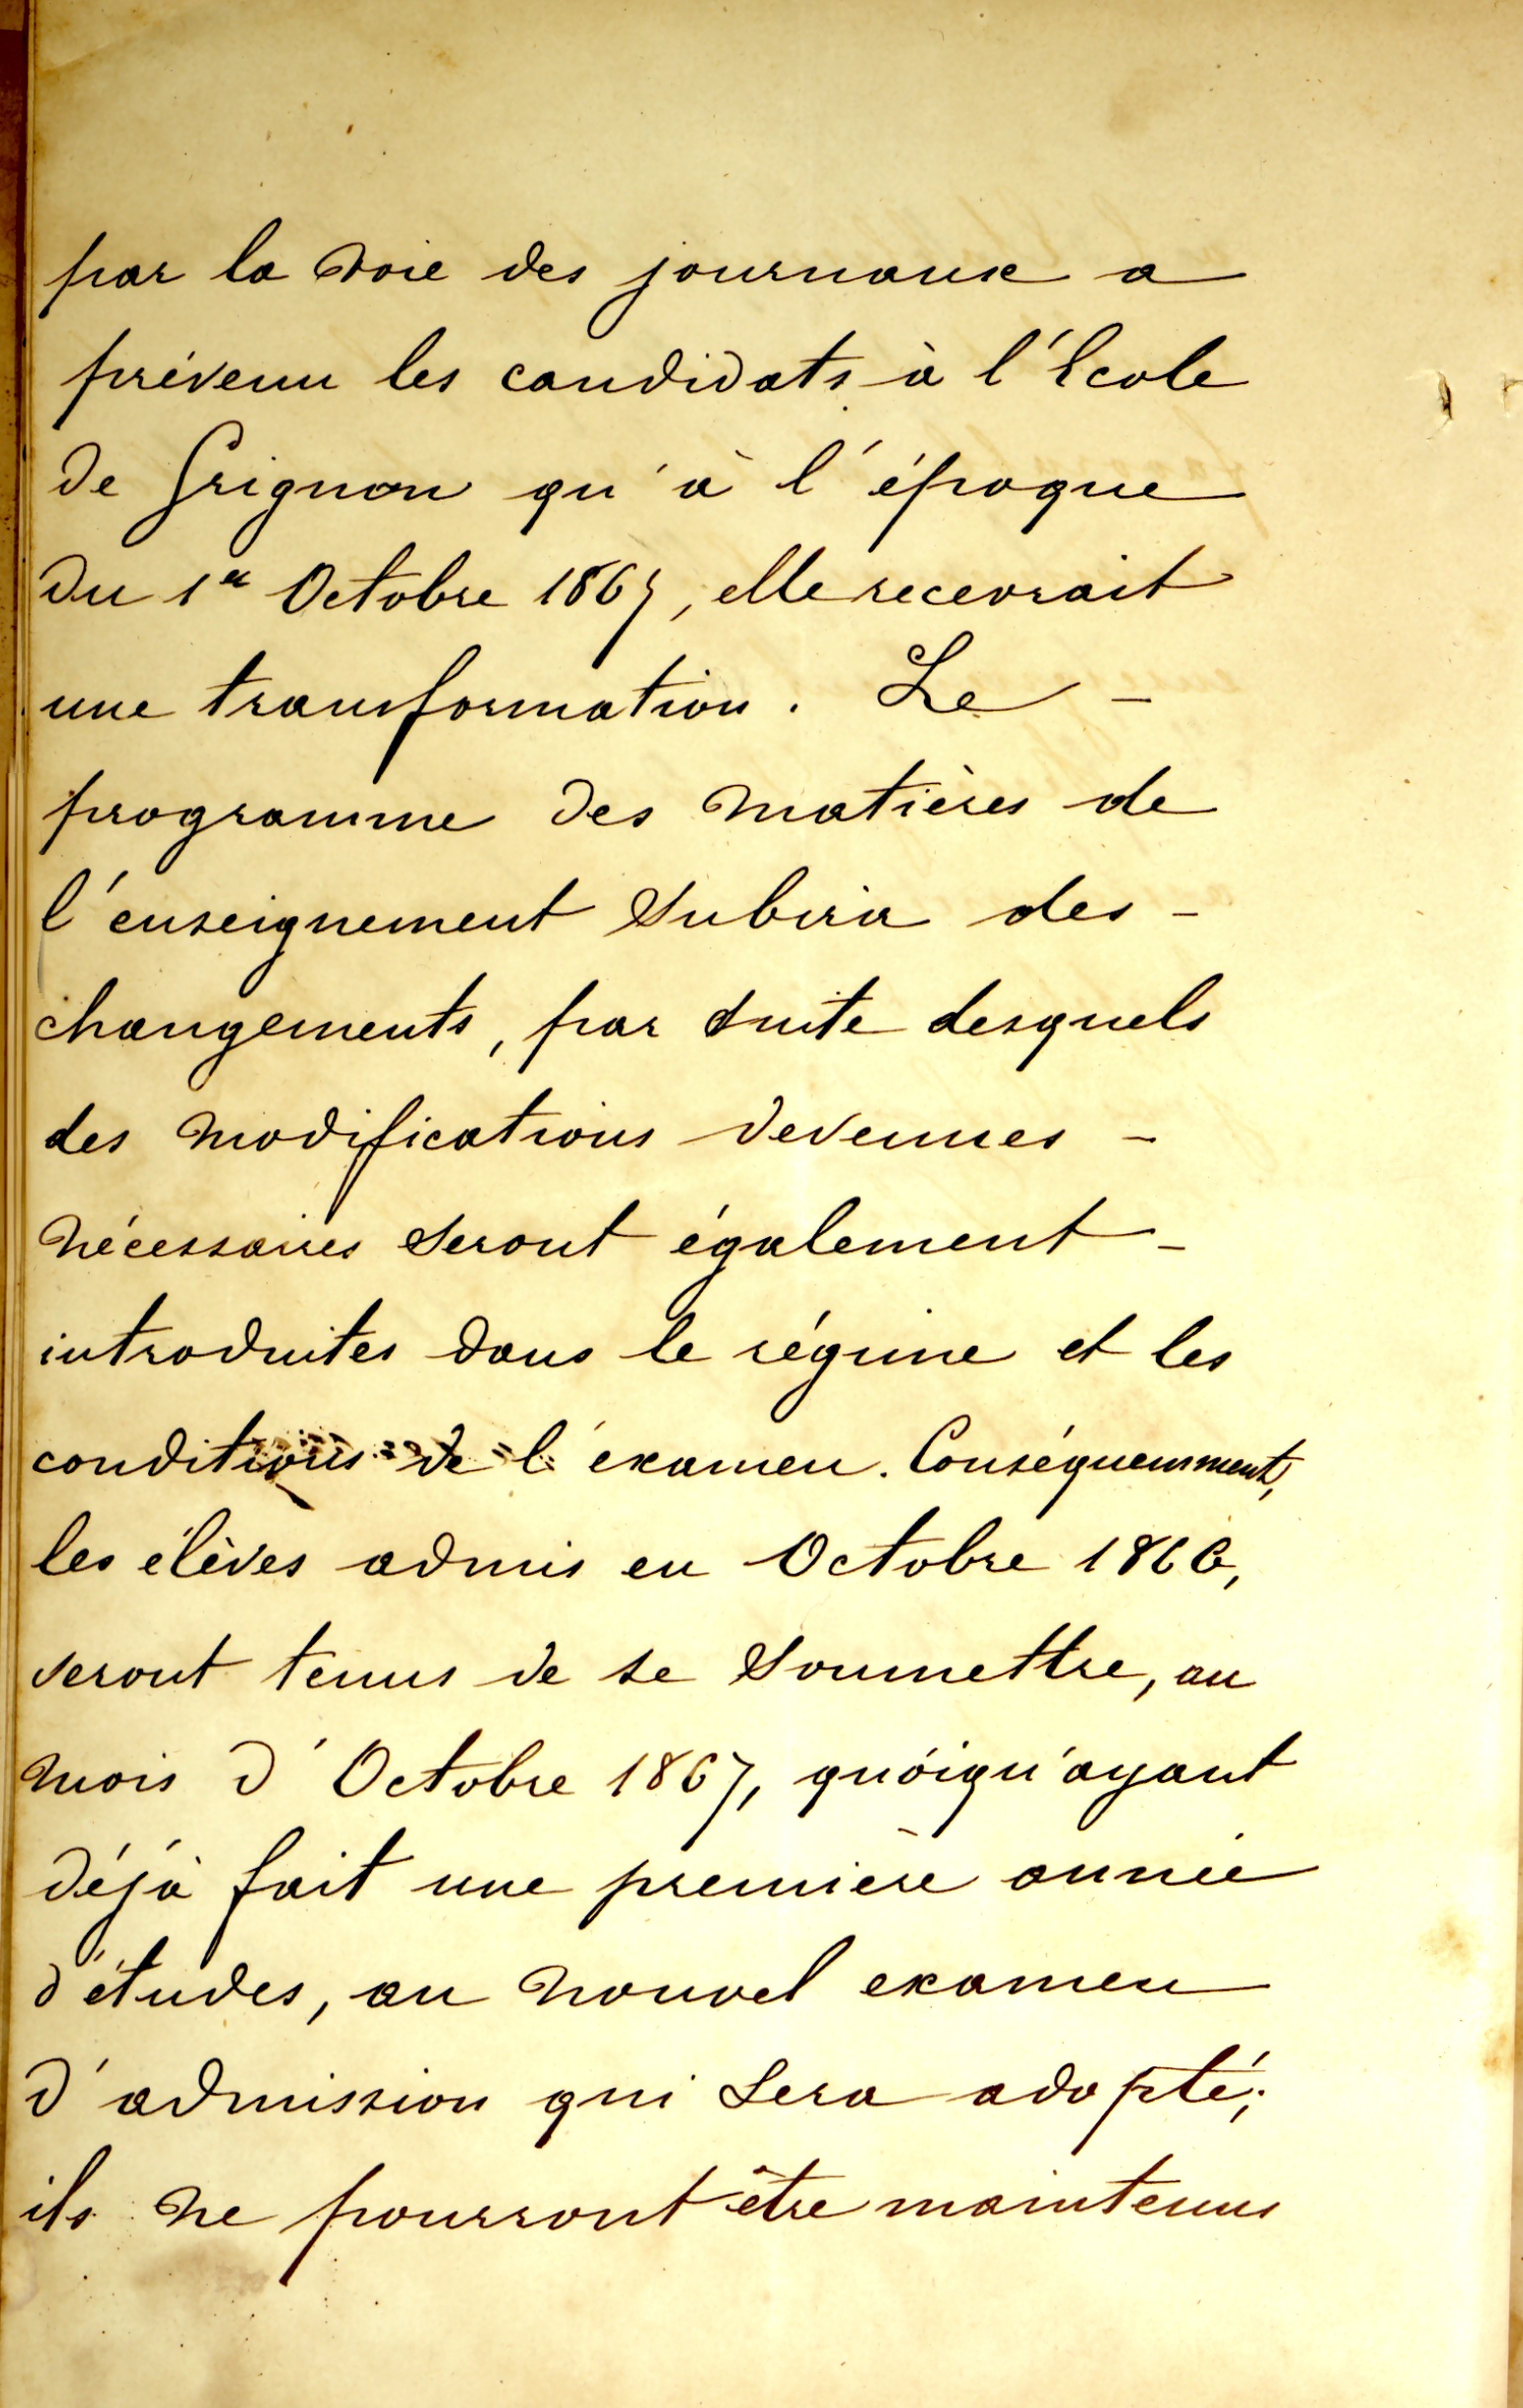 par la voie des journaux a
prévenu les candidats à l'Ecole
de Grignon qu'à l'époque
du 1er Octobre 1867, elle recevrait
une transformation. Le -
programme des matières de
l'enseignement subira des -
changements, par suite desquels
des modifications devenues -
nécessaires seront également -
introduites dans le régime et les
conditions de l'examen. Conséquemment,
les élèves admis en Octobre 1866,
seront tenus de se soumettre, au
mois d'Octobre 1867, quoiqu'ayant
déjà fait une première année
d'études, au nouvel examen
d'admission qui sera adopté;
ils ne pourront être maintenus